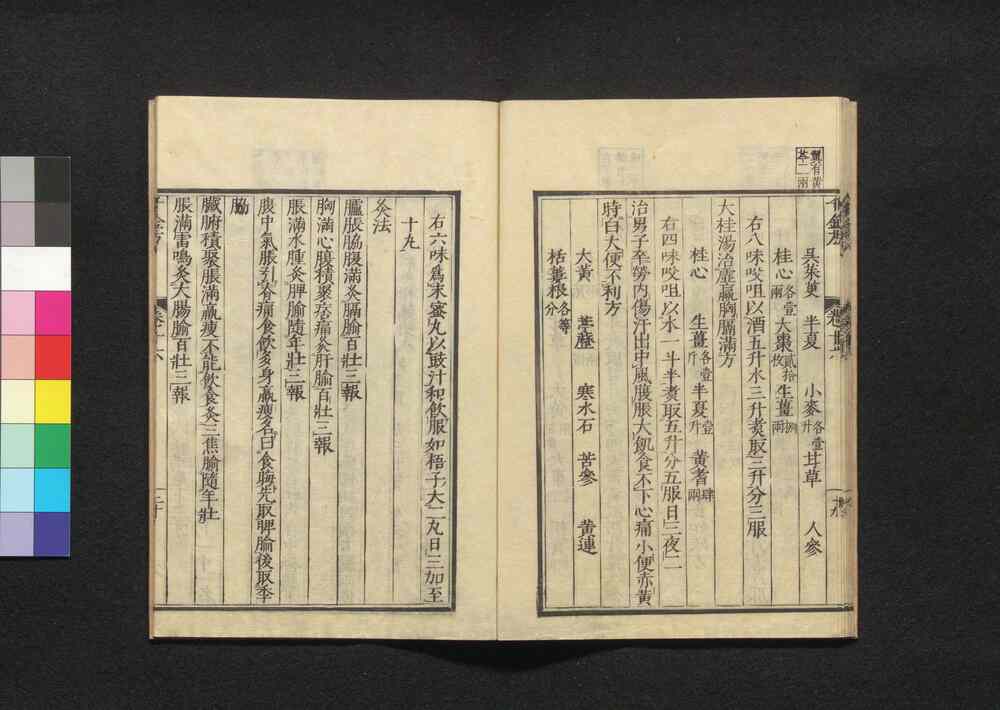 吳茱萸 半夏 小麥各壹升 甘草 人參
桂心各壹兩 大棗貳拾枚 生薑捌兩
右八味㕮咀以酒五升水三升煮取三升分三服
大桂湯治虛羸胸膈滿方
桂心 生薑各壹斤 半夏壹升 黃耆肆兩
右四味㕮咀以水一斗半煮取五升分五服日三夜二
治男子卒勞內傷汗出中風腹脹大飢食不下心痛小便赤黃
時白大便不利方
大黃 葶藶 寒水石 苦參 黃連
栝蔞根各等分
右六味爲末蜜丸以豉汁和飲服如梧子大二丸日三加至
十丸
灸法
臚脹脇腹滿灸膈腧百壯三報
胸滿心腹積聚痞痛灸肝腧百壯三報
脹滿水腫灸脾腧隨年壯三報
腹中氣脹引脊痛食飲多身羸瘦名曰食晦先取脾腧後取季
脇
臟腑積聚脹滿羸瘦不能飲食灸三焦腧隨年壯
脹滿雷鳴灸大腸腧百壯三報